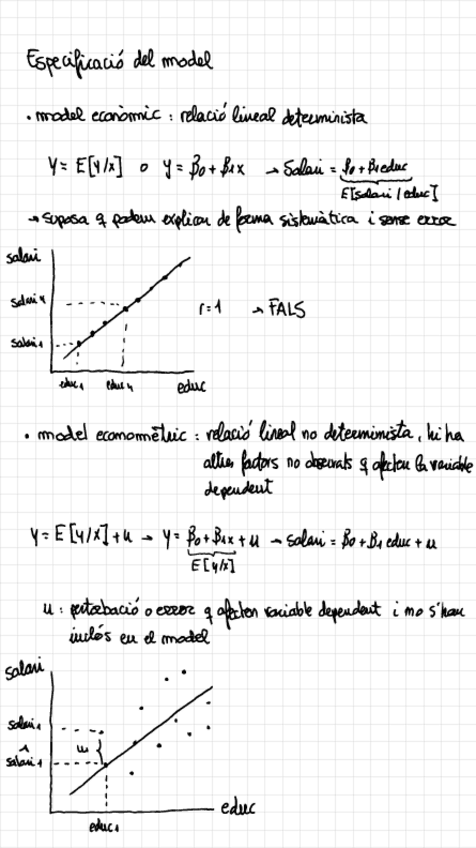 Especificació del model
• model econòmic : relació lineal determinista
Y = E[y/x] o y = β0 + β1x → Salari = β0 + β1educ
E[salari/educ]
→ suposa q podem explicar de forma sistemàtica i sense error
salari
salari4
salari1
r=1 → FALS
educ1 educ4 educ
• model economètric : relació lineal no determinista, hi ha
altres factors no observats q afecten la variable
dependent
Y = E[y/x] + u → y = β0 + β1x + u → salari = β0 + β1 educ + u
E[y/x]
u : pertorbació o error q afecten variable dependent i no s'han
inclós en el model
salari
salari1
u
^
salari1
educ
educ1